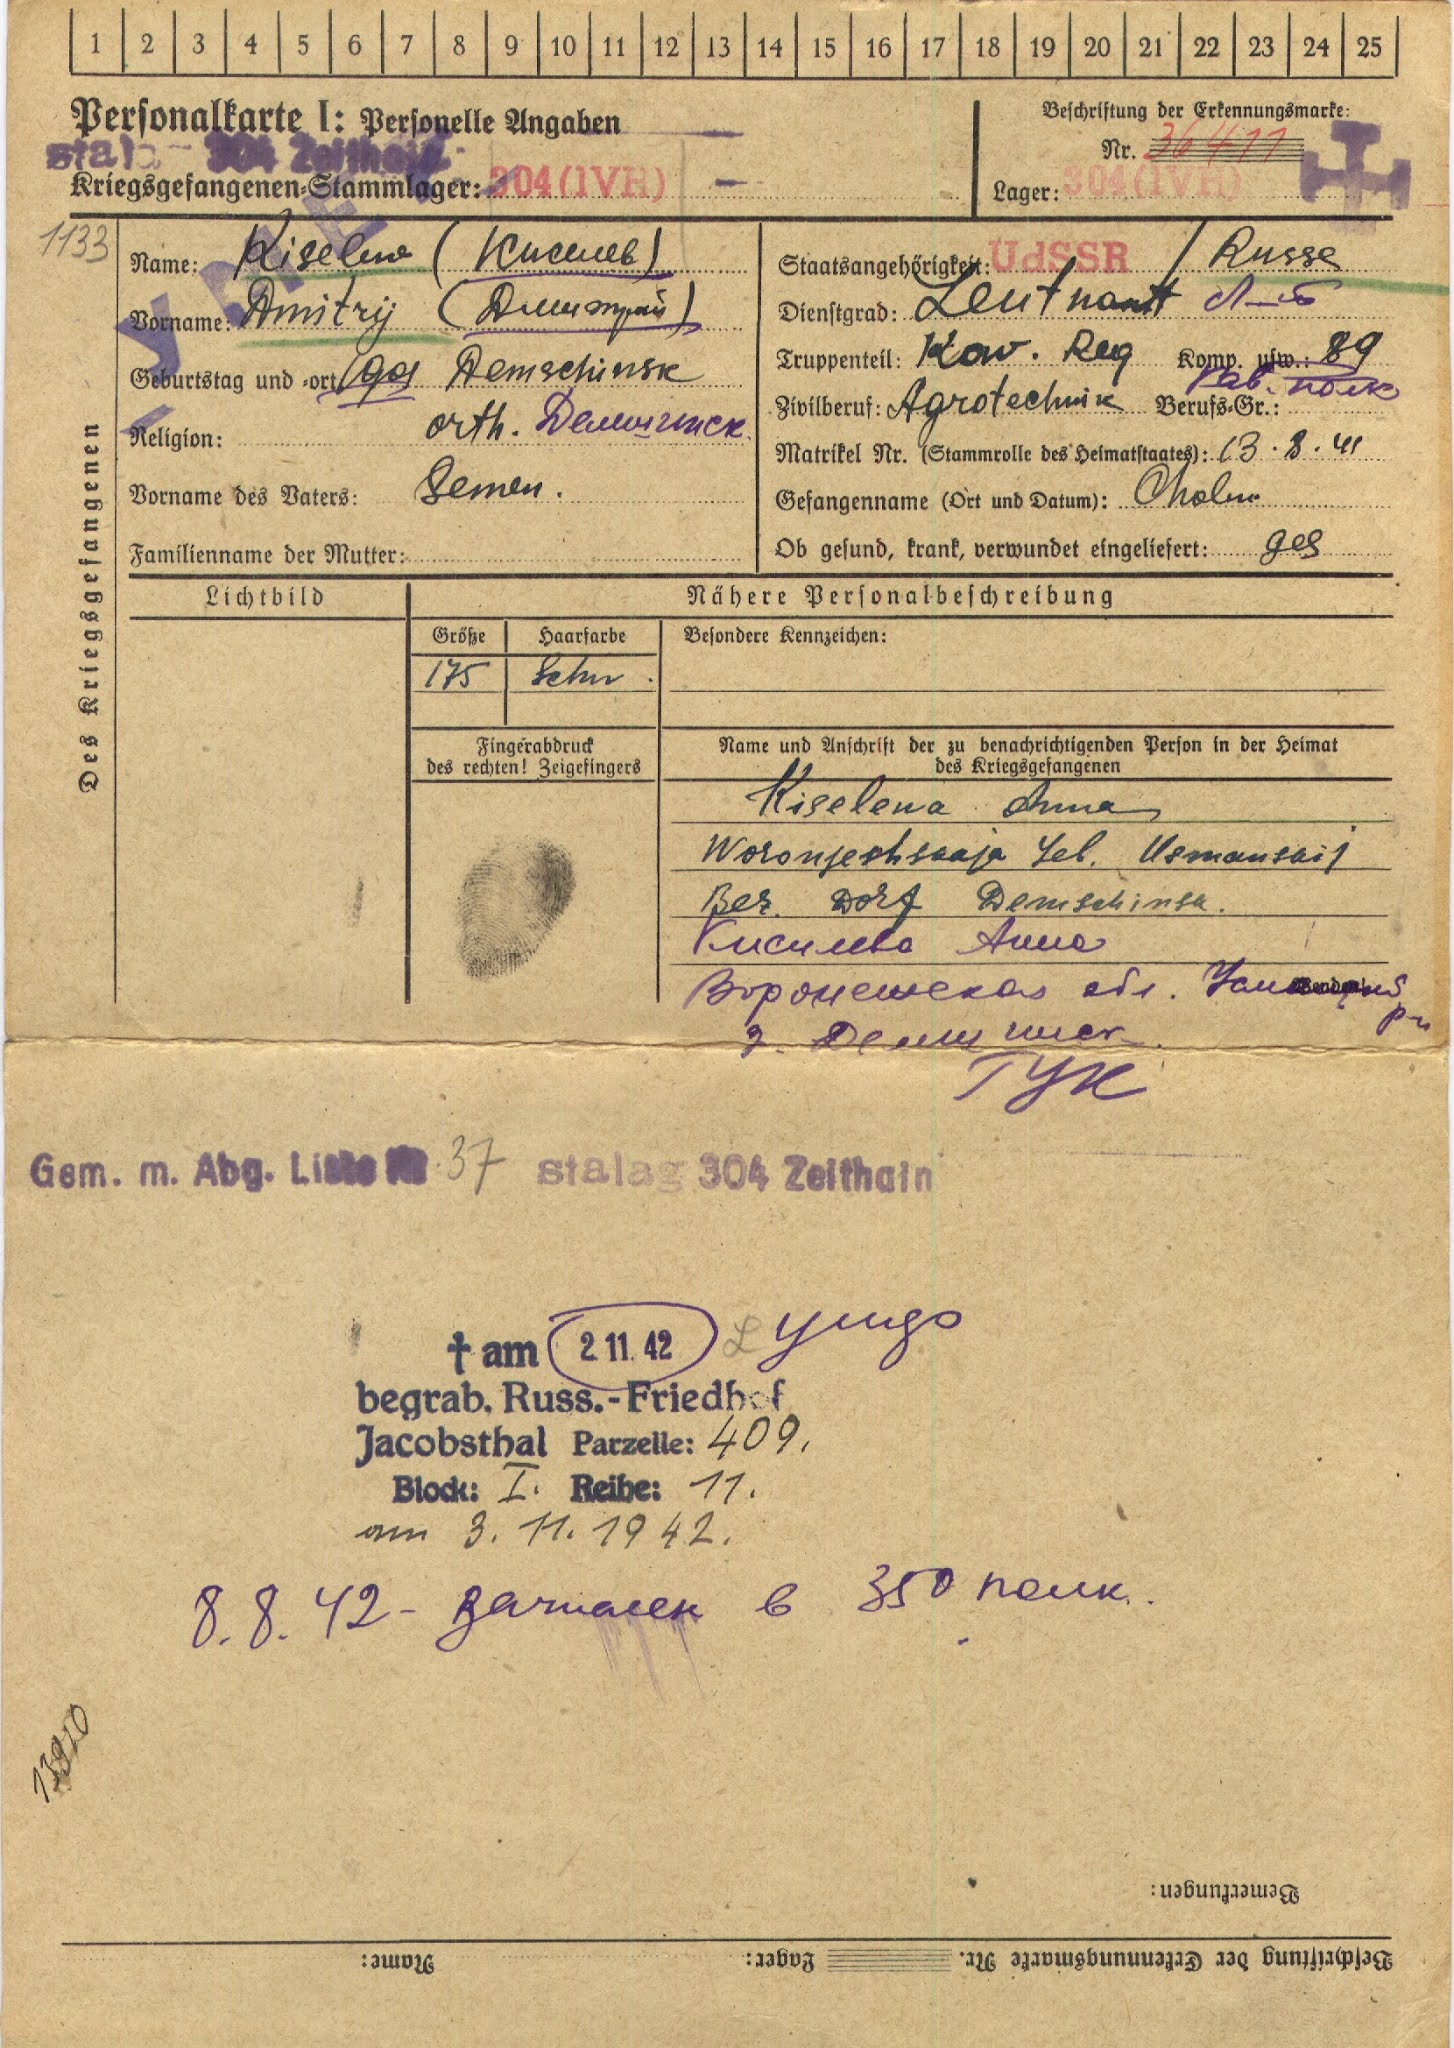 1 2 3 4 5 6 7 8 9 10 11 12 13 14 15 16 17 18 19 20 21 22 23 24 25
Personalkarte I: Personelle Angaben
stalag 304 Zeithain
Kriegsgefangenen-Stammlager: 304 (IVH)
Beschriftung der Erkennungsmarke:
Nr. 36411
Lager: 304 (IVH)
1133
Des Kriegsgefangenen
Name: Kiselew (Киселев)
Vorname: Dmitrij (Дмитрий)
Geburtstag und -ort Demschinsk
Religion: orth. Демшинск
Vorname des Vaters: Semen.
Familienname der Mutter:
Staatsangehörigkeit: UdSSR / Russe
Dienstgrad: Leutnant Л-т
Truppenteil: Kav. Reg Komp. usw.: 89
Кав. полк
Zivilberuf: Agrotechnik Berufs-Gr.:
Matrikel Nr. (Stammrolle des Heimatstaates): 13.8.41
Gefangenname (Ort und Datum): Cholm
Ob gesund, krank, verwundet eingeliefert: ges
Lichtbild
Nähere Personalbeschreibung
Größe Haarfarbe Besondere Kennzeichen:
175 Schw.
Fingerabdruck
des rechten! Zeigefingers
Name und Anschrift der zu benachrichtigenden Person in der Heimat
des Kriegsgefangenen
Kiselewa Anna
Woronjeshskaja Geb. Usmanskij
Bez. Dorf Demschinsk.
Киселева Анна
Воронежская обл. р-н
Демшинск
Gem. m. Abg. Liste Nr 37 stalag 304 Zeithain
† am 2.11.42
begrab. Russ.-Friedhof
Jacobsthal Parzelle: 409.
Block: I. Reihe: 11.
am 3.11.1942.
8.8.42- зачислен в 350 полк.
Bemerkungen:
Beschriftung der Erkennungsmarke Nr. Lager: Name: